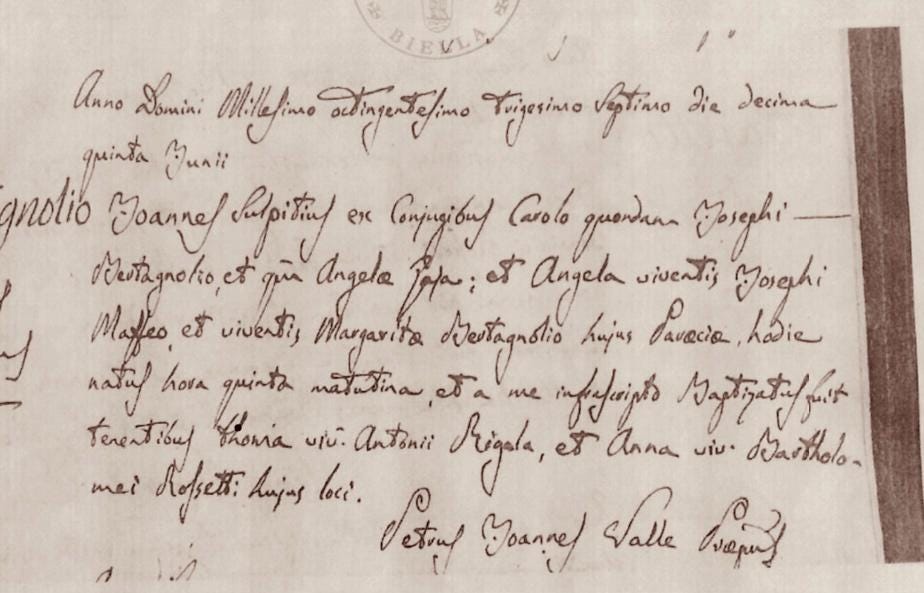 BIELLA
Anno Domini Millesimo octingentesimo trigesimo septimo die decima
quinta Junii
gnolio Joannes Sulpitius ex Conjugibus Carolo quondam Josephi
Bertagnolio, et qm Angelæ ; et Angela viventis Josephi
Maffeo, et viventis Margaritæ Bertagnolio hujus Parœciæ, hodie
natus hora quinta matutina, et a me infrascripto Baptizatus fuit
tenentibus thoma viv. Antonii Regala, et Anna viv. Bartholo-
mei Rossetti hujus loci.
Petrus Joannes Valle Præpus